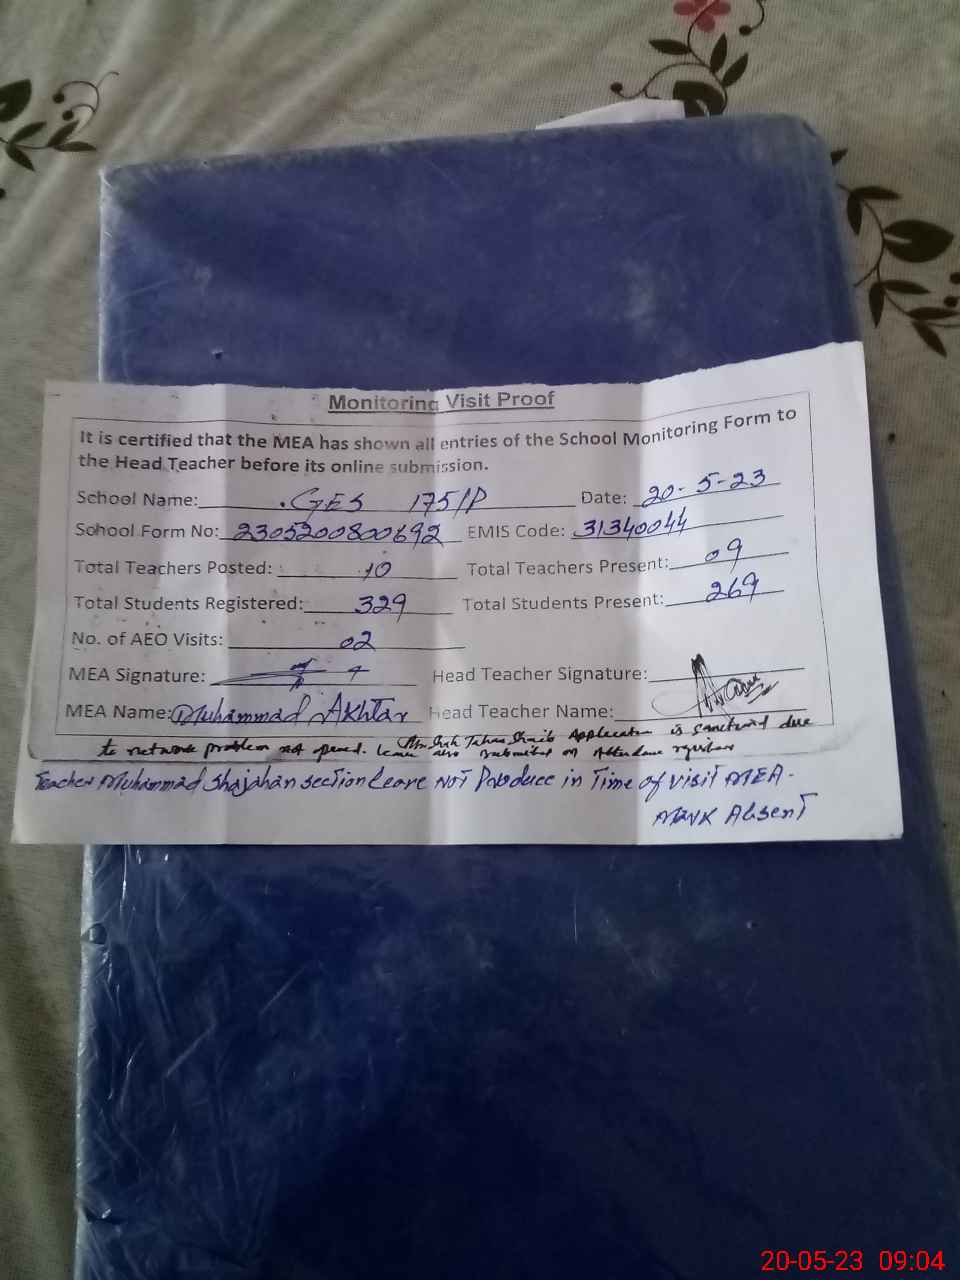 Monitoring Visit Proof
It is certified that the MEA has shown all entries of the School Monitoring Form to
the Head Teacher before its online submission.
School Name: GES 175/P Date: 20-5-23
School Form No: 2305200800692 EMIS Code: 31340044
Total Teachers Posted: 10 Total Teachers Present: 09
Total Students Registered: 329 Total Students Present: 269
No. of AEO Visits: 02
MEA Signature: Head Teacher Signature:
MEA Name: Muhammad Akhtar Head Teacher Name:
Application is sanctioned due
to network problem not opened. Leave also Submitted on Attendance register
Teacher Muhammad Shajahan section Leave Not Produce in Time of visit MEA.
Mark Absent
20-05-23 09:04